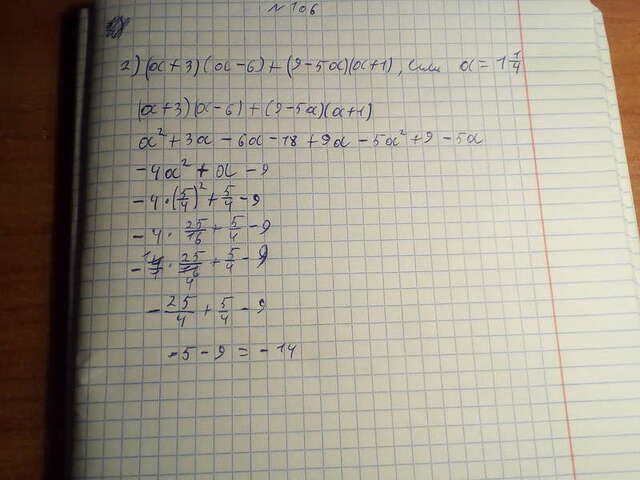 №106
2) (a+3)(a-6)+(9-5a)(a+1), если a=1 1/4
(a+3)(a-6)+(9-5a)(a+1)
a²+3a-6a-18+9a-5a²+9-5a
-4a²+a-9
-4·(5/4)²+5/4-9
-4·25/16+5/4-9
-4/1·25/16+5/4-9
-25/4+5/4-9
-5-9=-14